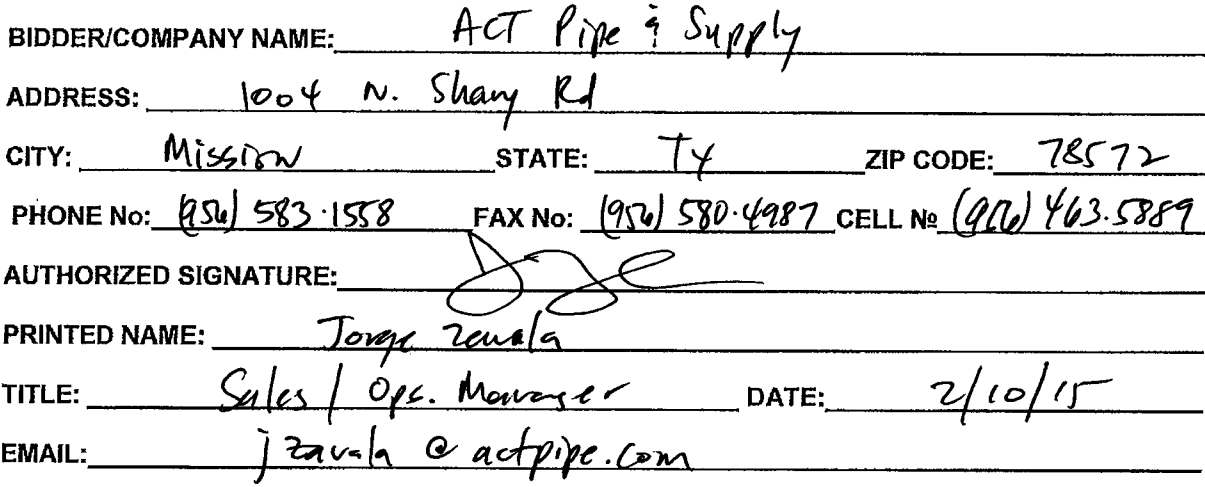 BIDDER/COMPANY NAME: ACT Pipe & Supply
ADDRESS: 1004 N. Shary Rd
CITY: Mission STATE: TX ZIP CODE: 78572
PHONE No: (956) 583.1558 FAX No: (956) 580.4987 CELL № (956) 463.5889
AUTHORIZED SIGNATURE:
PRINTED NAME: Jorge Zavala
TITLE: Sales / Ops. Manager DATE: 2/10/15
EMAIL: jzavala @ actpipe.com